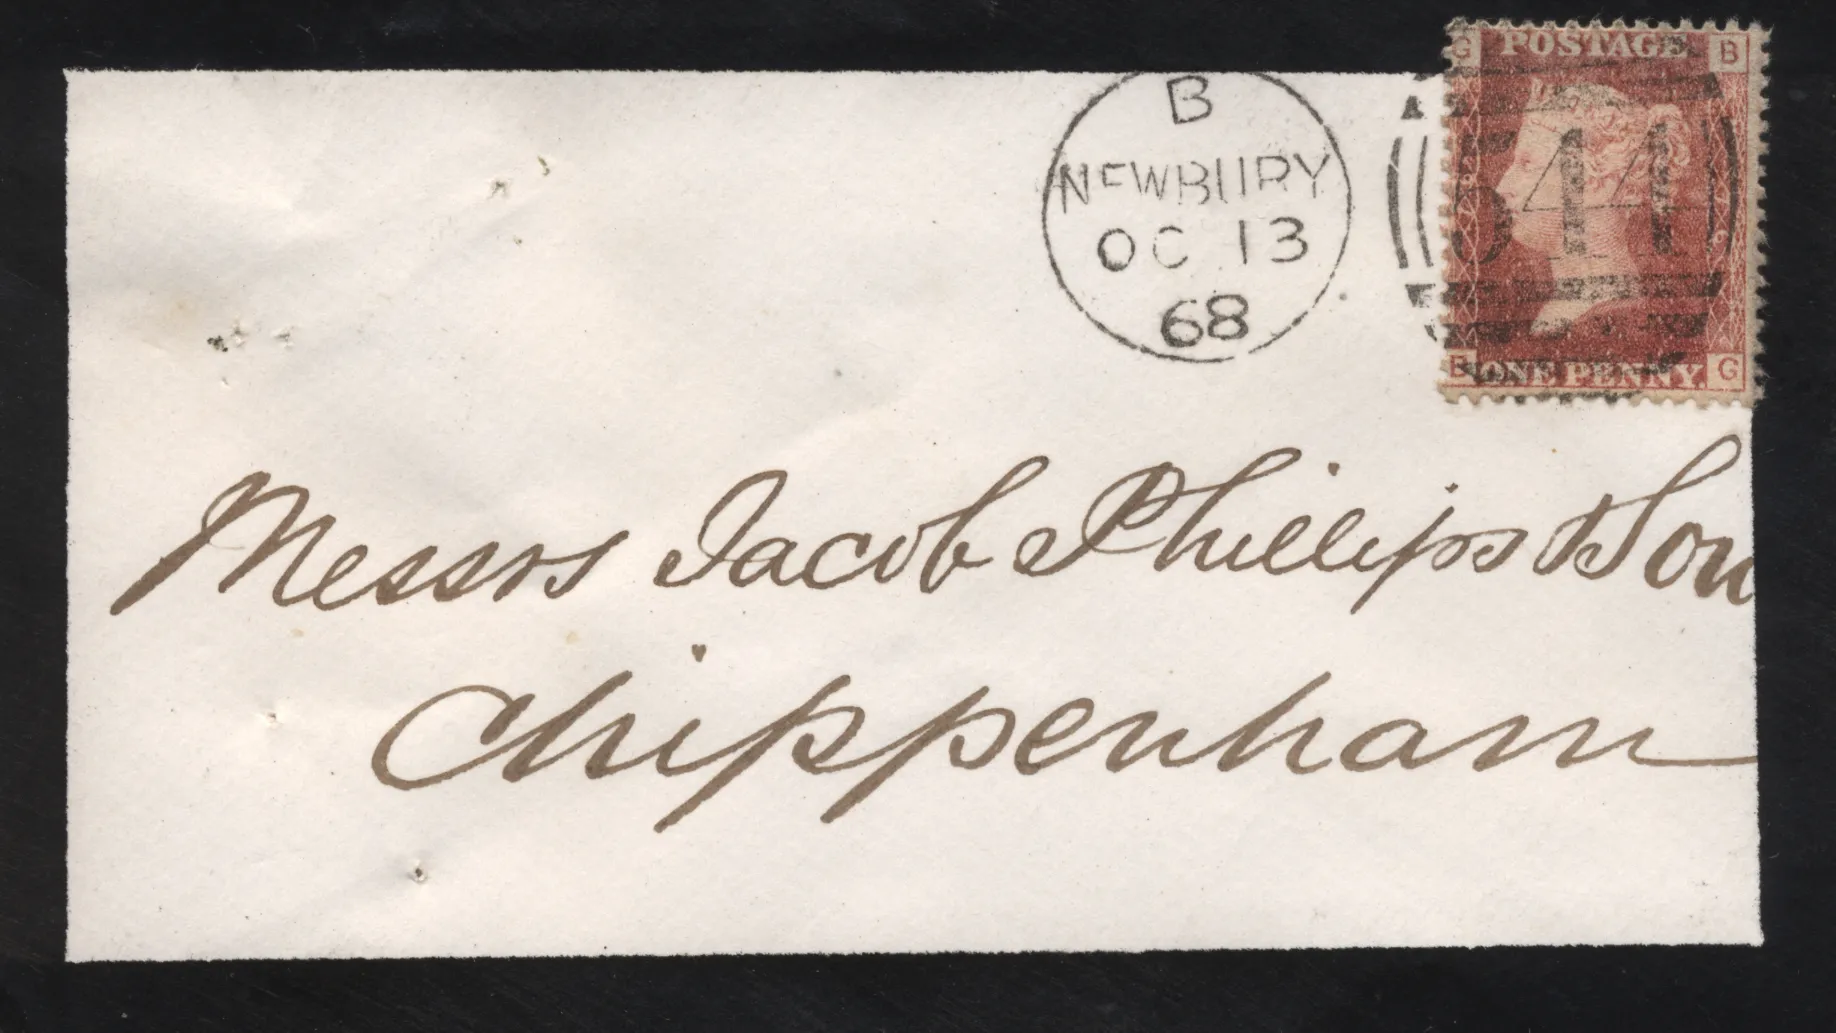 G POSTAGE B
B
NEWBURY
OC 13
68
544
B ONE PENNY G
Messrs Jacob Phillips & Son
Chippenham